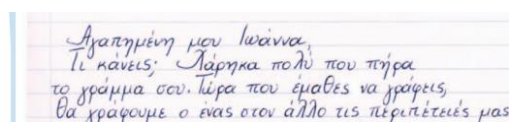 Αγαπημένη μου Ιωάννα,
Τι κάνεις; Χάρηκα πολύ που πήρα
το γράμμα σου. Τώρα που έμαθες να γράφεις,
θα γράφουμε ο ένας στον άλλο τις περιπέτειές μας